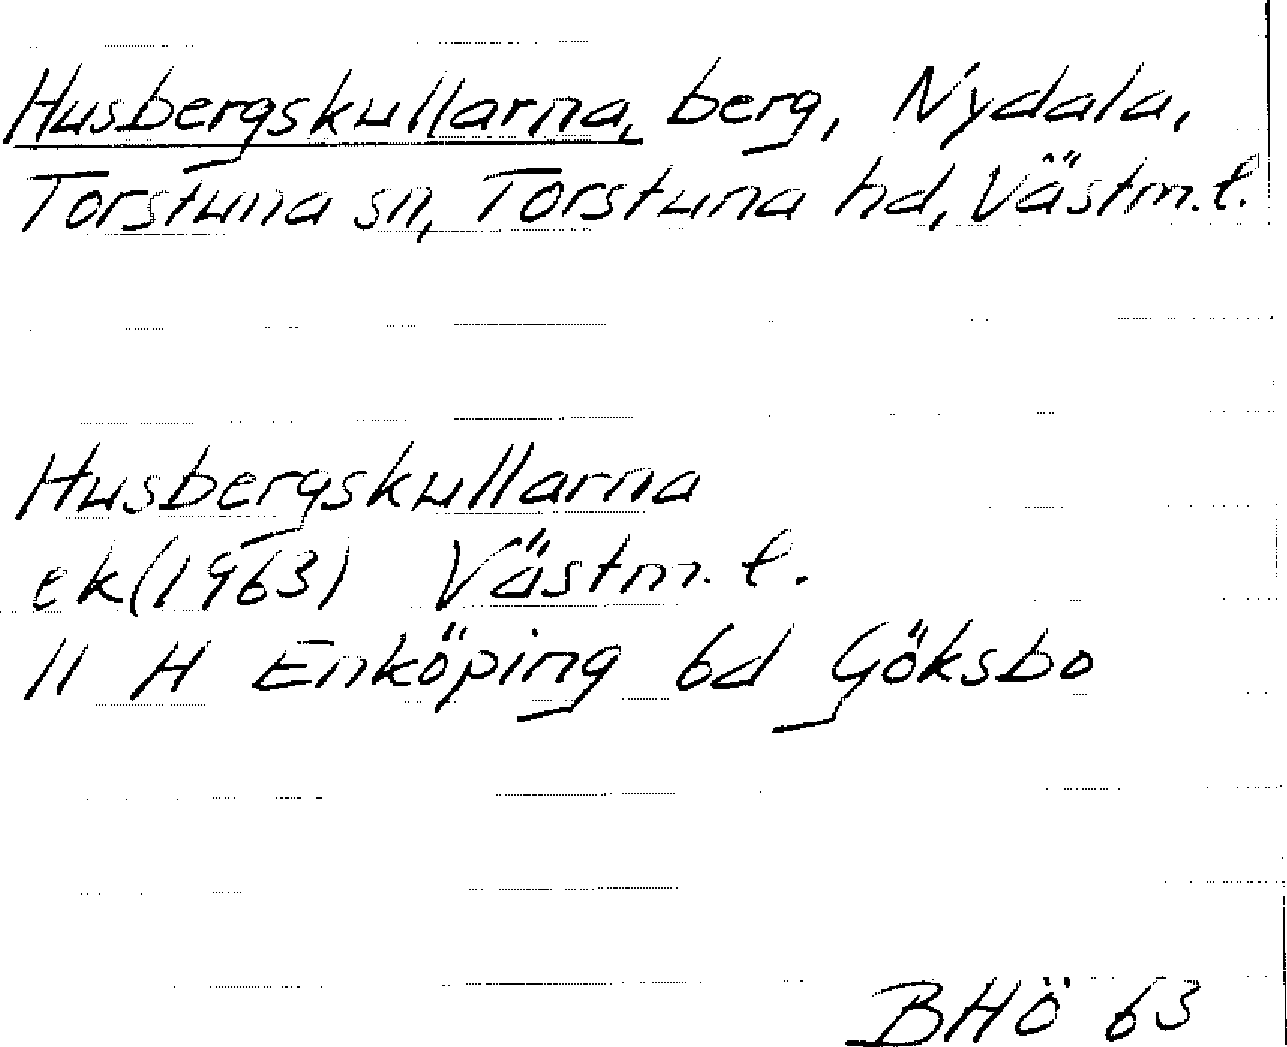 Husbergskullarna, berg, Nydala,
Torstuna sn, Torstuna hd, Västm. l.
Husbergskullarna
ek (1963) Västm. l.
11 H Enköping 6d Göksbo
BHÖ 63